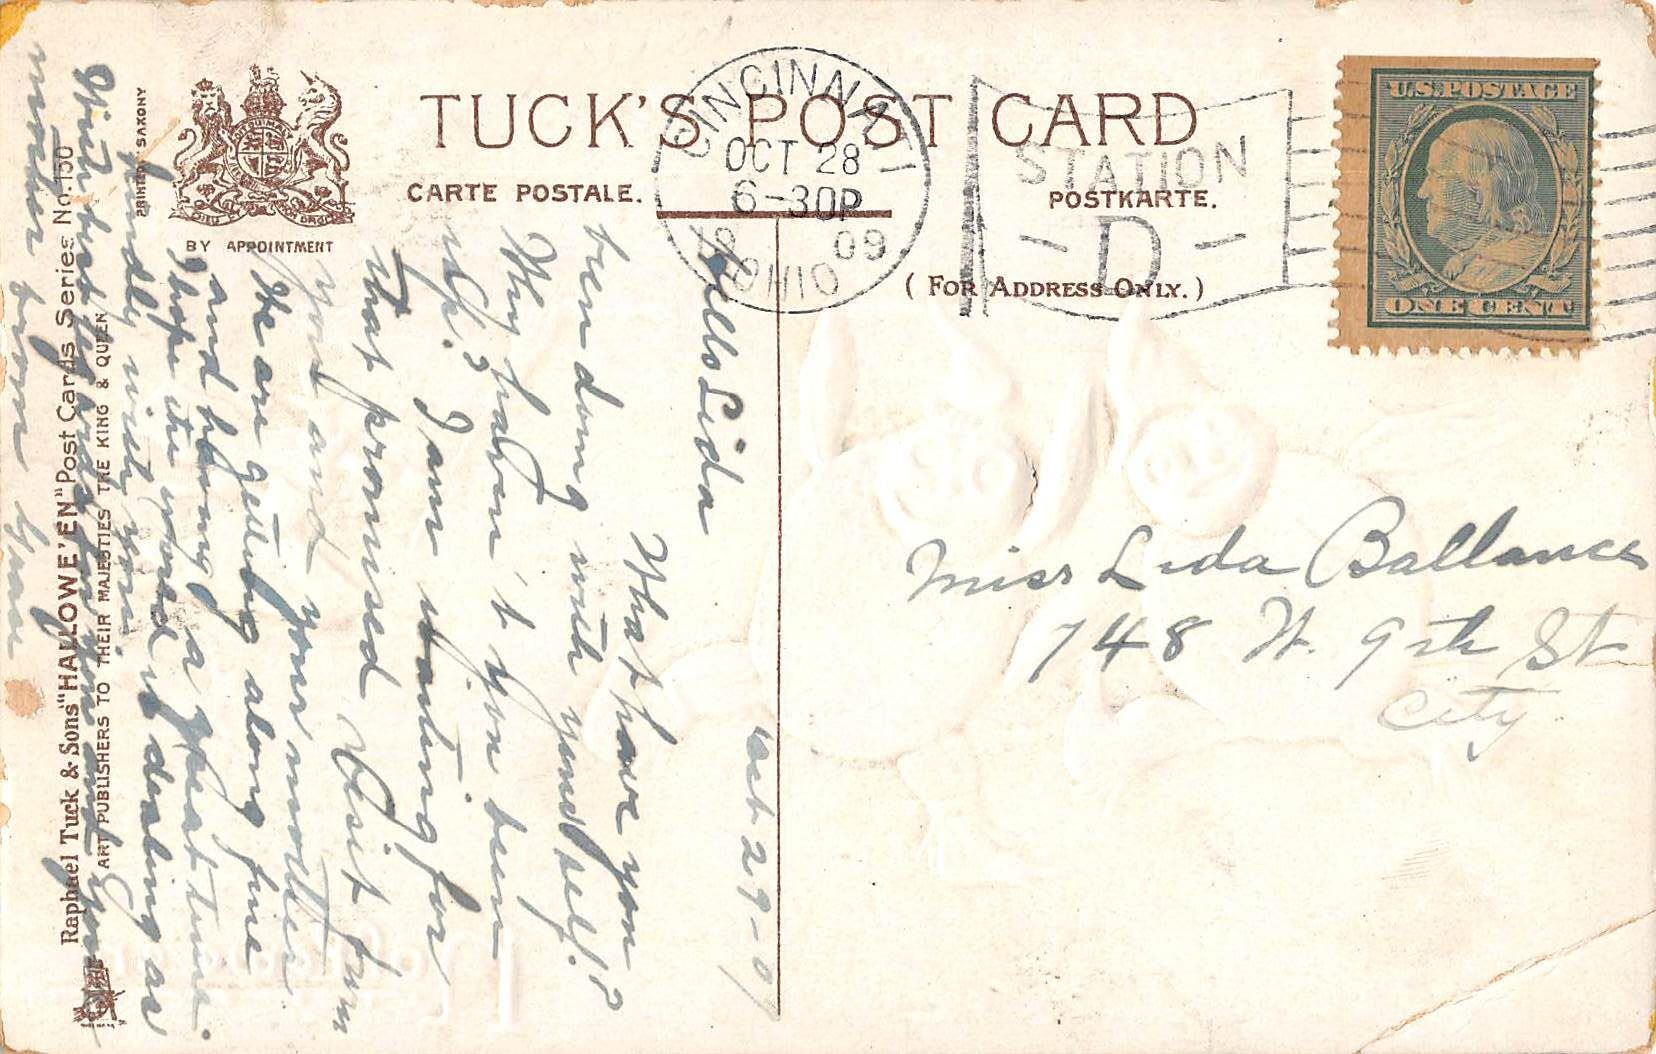 TUCK'S POST CARD
CARTE POSTALE.
POSTKARTE.
( FOR ADDRESS ONLY. )
BY APPOINTMENT
PRINTED SAXONY
Raphael Tuck & Sons "HALLOWE'EN" Post Cards Series No. 150
ART PUBLISHERS TO THEIR MAJESTIES THE KING & QUEEN
CINCINNATI
OCT 28
6-30P
19 09
OHIO
STATION
D
U.S. POSTAGE
ONE CENT
Miss Lida Ballance
748 W. 9th St
City
Oct 29-09
Hello Lida
What have you
been doing with yourself?
Why haven't you been
up? I am waiting for
that promised visit from
you and your mother.
We are getting along fine
and having a great time.
I hope the world is dealing as
kindly with you.
With best regards to you and your
mother from